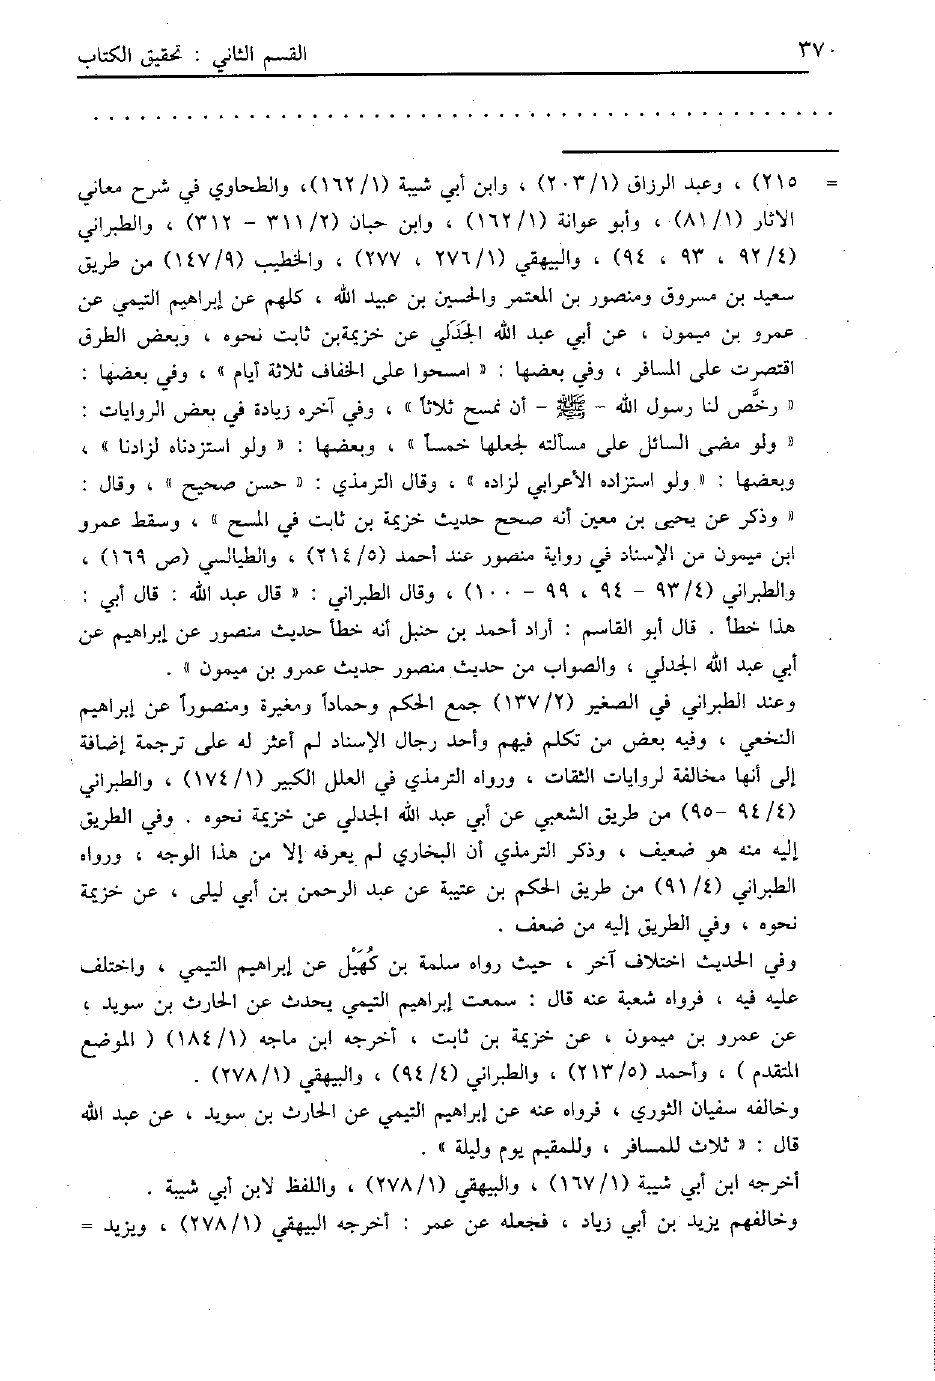 ٣٧٠
القسم الثاني : تحقيق الكتاب
. . . . . . . . . . . . . . . . . . . . . . . . . . . . . . . . . . . . . . . . . . . . . .
= ٢١٥) ، وعبد الرزاق (٢٠٣/١) ، وابن أبي شيبة (١٦٢/١)، والطحاوي في شرح معاني
الآثار (٨١/١) ، وأبو عوانة (١٦٢/١) ، وابن حبان (٣١١/٢ - ٣١٢) ، والطبراني
(٩٢/٤ ، ٩٣ ، ٩٤) ، والبيهقي (٢٧٦/١ ، ٢٧٧) ، والخطيب (١٤٧/٩) من طريق
سعيد بن مسروق ومنصور بن المعتمر والحسين بن عبيد الله ، كلهم عن إبراهيم التيمي عن
عمرو بن ميمون ، عن أبي عبد الله الجَدَلي عن خزيمةبن ثابت نحوه ، وبعض الطرق
اقتصرت على المسافر ، وفي بعضها : « امسحوا على الخفاف ثلاثة أيام » ، وفي بعضها :
« رخَّص لنا رسول الله - ﷺ - أن نمسح ثلاثاً » ، وفي آخره زيادة في بعض الروايات :
« ولو مضى السائل على مسألته لجعلها خمساً » ، وبعضها : « ولو استزدناه لزادنا » ،
وبعضها : « ولو استزاده الأعرابي لزاده » ، وقال الترمذي : « حسن صحيح » ، وقال :
« وذكر عن يحيى بن معين أنه صحح حديث خزيمة بن ثابت في المسح » ، وسقط عمرو
ابن ميمون من الإسناد في رواية منصور عند أحمد (٢١٤/٥) ، والطيالسي (ص ١٦٩) ،
والطبراني (٩٣/٤ - ٩٤ ، ٩٩ - ١٠٠) ، وقال الطبراني : « قال عبد الله : قال أبي :
هذا خطأ . قال أبو القاسم : أراد أحمد بن حنبل أنه خطأ حديث منصور عن إبراهيم عن
أبي عبد الله الجدلي ، والصواب من حديث منصور حديث عمرو بن ميمون » .
وعند الطبراني في الصغير (١٣٧/٢) جمع الحكم وحماداً ومغيرة ومنصوراً عن إبراهيم
النخعي ، وفيه بعض من تكلم فيهم وأحد رجال الإسناد لم أعثر له على ترجمة إضافة
إلى أنها مخالفة لروايات الثقات ، ورواه الترمذي في العلل الكبير (١٧٤/١) ، والطبراني
(٩٤/٤ -٩٥) من طريق الشعبي عن أبي عبد الله الجدلي عن خزيمة نحوه . وفي الطريق
إليه منه هو ضعيف ، وذكر الترمذي أن البخاري لم يعرفه إلا من هذا الوجه ، ورواه
الطبراني (٩١/٤) من طريق الحكم بن عتيبة عن عبد الرحمن بن أبي ليلى ، عن خزيمة
نحوه ، وفي الطريق إليه من ضعف .
وفي الحديث اختلاف آخر ، حيث رواه سلمة بن كُهَيْل عن إبراهيم التيمي ، واختلف
عليه فيه ، فرواه شعبة عنه قال : سمعت إبراهيم التيمي يحدث عن الحارث بن سويد ،
عن عمرو بن ميمون ، عن خزيمة بن ثابت ، أخرجه ابن ماجه (١٨٤/١) ( الموضع
المتقدم ) ، وأحمد (٢١٣/٥) ، والطبراني (٩٤/٤) ، والبيهقي (٢٧٨/١) .
وخالفه سفيان الثوري ، فرواه عنه عن إبراهيم التيمي عن الحارث بن سويد ، عن عبد الله
قال : « ثلاث للمسافر ، وللمقيم يوم وليلة » .
أخرجه ابن أبي شيبة (١٦٧/١) ، والبيهقي (٢٧٨/١) ، واللفظ لابن أبي شيبة .
وخالفهم يزيد بن أبي زياد ، فجعله عن عمر : أخرجه البيهقي (٢٧٨/١) ، ويزيد =